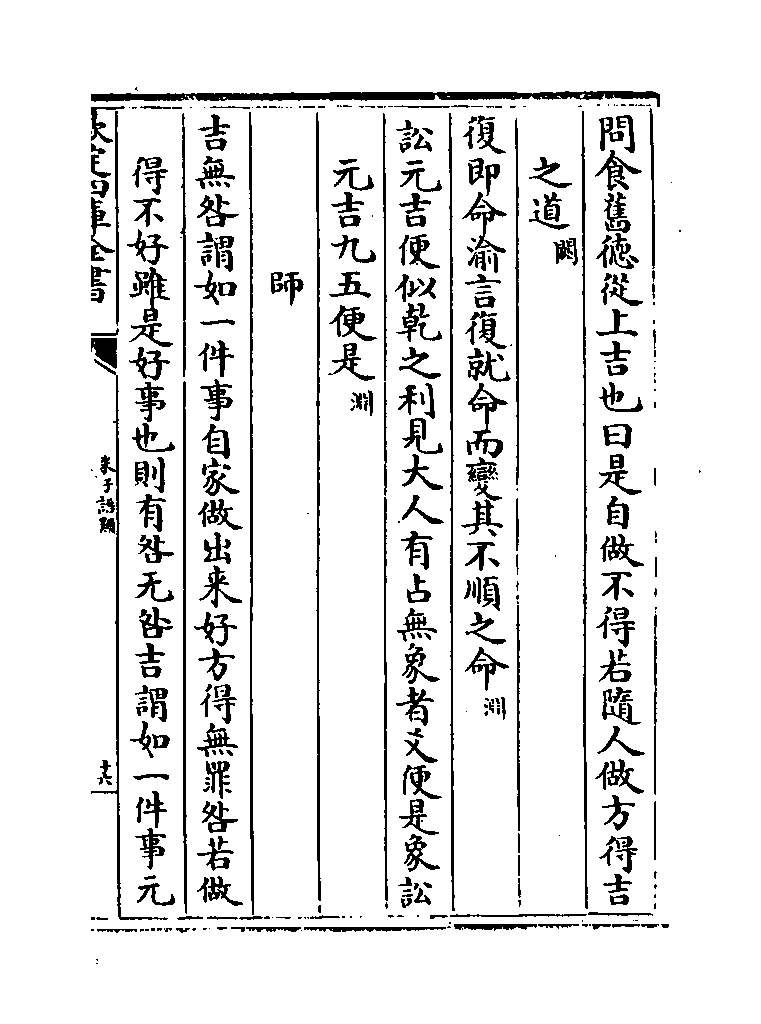 問食舊徳從上吉也曰是自做不得若隨人做方得吉
之道閎
復即命渝言復就命而變其不順之命淵
訟元吉便似乾之利見大人有占無象者爻便是象訟
元吉九五便是淵
師
吉無咎謂如一件事自家做出来好方得無罪咎若做
得不好雖是好事也則有咎无咎吉謂如一件事元
欽定四庫全書
朱子語類
十六